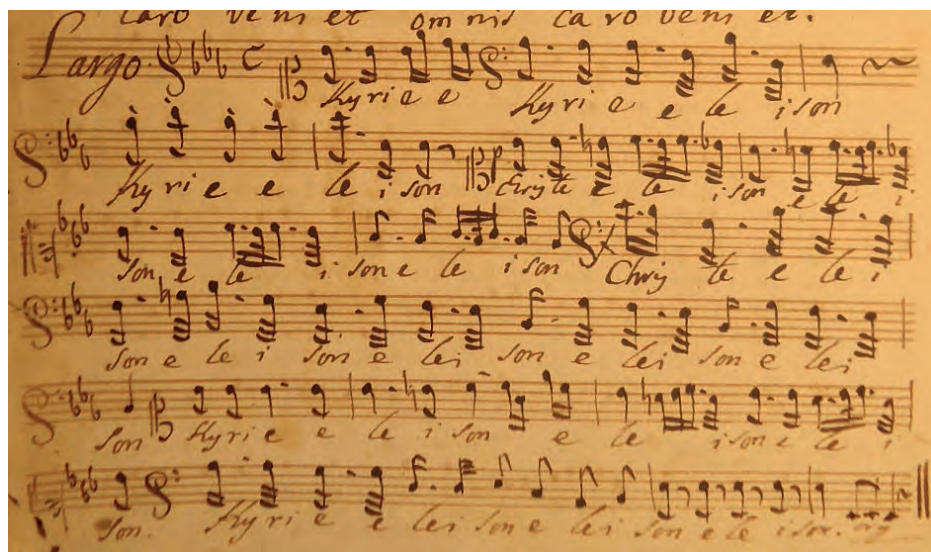 caro veni et omnis caro veni et.
Largo. Kyrie e Kyrie e le ison
Kyrie e le ison Chryste e le ison e le i
son e le i son e le ison Chry te e le i
son e le i son e lei son e lei son e lei
son Kyrie e le i son e le ison e le i
son. Kyri e e lei son e lei son e le ison.